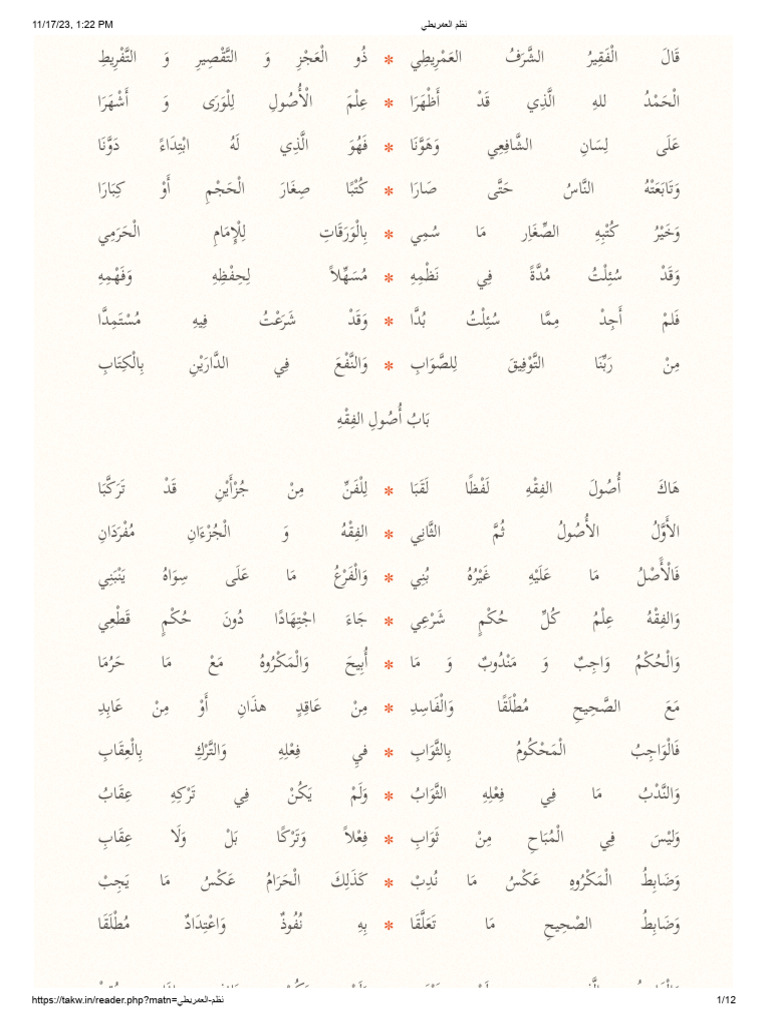 11/17/23, 1:22 PM نظم العمريطي
قَالَ الْفَقِيرُ الشَّرَفُ العَمْرِيطِي * ذُو الْعَجْزِ وَ التَّقْصِيرِ وَ التَّفْرِيطِ
الْحَمْدُ للهِ الَّذِي قَدْ أَظْهَرَا * عِلْمَ الْأُصُولِ لِلْوَرَى وَ أَشْهَرَا
عَلَى لِسَانِ الشَّافِعِي وَهَوَّنَا * فَهُوَ الَّذِي لَهُ ابْتِدَاءً دَوَّنَا
وَتَابَعَتْهُ النَّاسُ حَتَّى صَارَا * كُتْبًا صِغَارَ الْحَجْمِ أَوْ كِبَارَا
وَخَيْرُ كُتْبِهِ الصِّغَارِ مَا سُمِي * بِالْوَرَقَاتِ لِلْإِمَامِ الْحَرَمِي
وَقَدْ سُئِلْتُ مُدَّةً فِي نَظْمِهِ * مُسَهِّلاً لِحِفْظِهِ وَفَهْمِهِ
فَلمْ أَجِدْ مِمَّا سُئِلْتُ بُدَّا * وَقَدْ شَرَعْتُ فِيهِ مُسْتَمِدَّا
مِنْ رَبِّنَا التَّوْفِيقَ لِلصَّوَابِ * وَالنَّفْعَ فِي الدَّارَيْنِ بِالْكِتَابِ
بَابُ أُصُولِ الفِقْهِ
هَاكَ أُصُولَ الفِقْهِ لَفْظًا لَقَبَا * لِلْفَنِّ مِنْ جُزْأَيْنِ قَدْ تَرَكَّبَا
الأَوَّلُ الأُصُولُ ثُمَّ الثَّانِي * الفِقْهُ وَ الْجُزْءَانِ مُفْرَدَانِ
فَالْأَصْلُ مَا عَلَيْهِ غَيْرُهُ بُنِي * وَالْفَرْعُ مَا عَلَى سِوَاهُ يَنْبَنِي
وَالفِقْهُ عِلْمُ كُلِّ حُكْمٍ شَرْعِي * جَاءَ اجْتِهَادًا دُونَ حُكْمٍ قَطْعِي
وَالْحُكْمُ وَاجِبٌ وَ مَنْدُوبٌ وَ مَا * أُبِيحَ وَالْمَكْرُوهُ مَعْ مَا حَرُمَا
مَعَ الصَّحِيحِ مُطْلَقًا وَالْفَاسِدِ * مِنْ عَاقِدٍ هذَانِ أَوْ مِنْ عَابِدِ
فَالْوَاجِبُ الْمَحْكُومُ بِالثَّوَابِ * فيِ فِعْلِهِ وَالتَّرْكِ بِالْعِقَابِ
وَالنَّدْبُ مَا فِي فِعْلِهِ الثَّوَابُ * وَلَمْ يَكُنْ فِي تَرْكِهِ عِقَابُ
وَلَيْسَ فِي الْمُبَاحِ مِنْ ثَوَابِ * فِعْلاً وَتَرْكًا بَلْ وَلَا عِقَابِ
وَضَابِطُ الْمَكْرُوهِ عَكْسُ مَا نُدِبْ * كَذَلِكَ الْحَرَامُ عَكْسُ مَا يَجِبْ
وَضَابِطُ الصْحِيحِ مَا تَعَلَّقَا * بِهِ نُفُوذٌ وَاعْتِدَادٌ مُطْلَقَا
https://takw.in/reader.php?matn=نظم-العمريطي 1/12